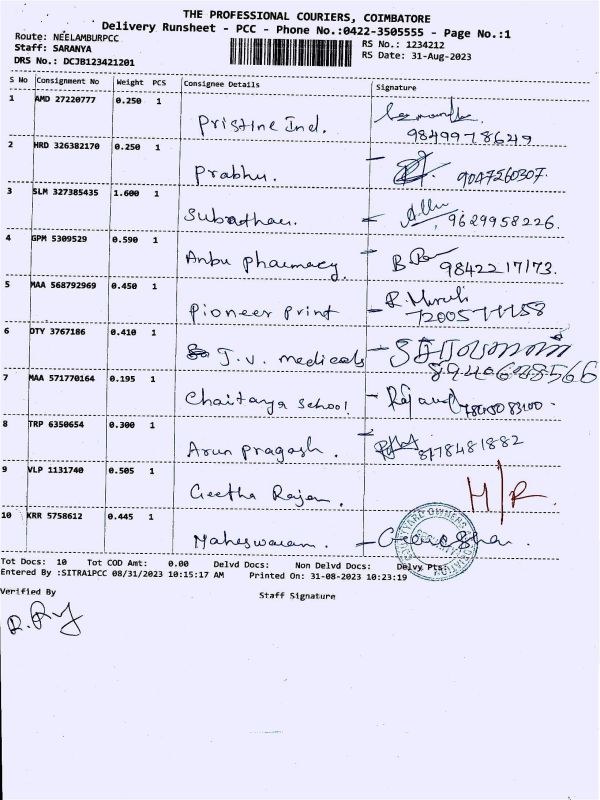 THE PROFESSIONAL COURIERS, COIMBATORE
Delivery Runsheet - PCC - Phone No.:0422-3505555 - Page No.:1
Route: NEELAMBURPCC
RS No.: 1234212
Staff: SARANYA
RS Date: 31-Aug-2023
DRS No.: DCJB123421201
S No Consignment No Weight PCS Consignee Details Signature
1 AMD 27220777 0.250 1
Pristine Ind. 9849978649
2 HRD 326382170 0.250 1
Prabhu. 9047260307.
3 SLM 327385435 1.600 1
9629958226.
4 GPM 5309529 0.590 1
Anbu pharmacy. 9842217173.
5 MAA 568792969 0.450 1
Pioneer print R. Murali
6 DTY 3767186 0.410 1
J.V. medicals
7 MAA 571770164 0.195 1
Chaitanya school
8 TRP 6350654 0.300 1
Arun pragash. 8778481882
9 VLP 1131740 0.505 1
Geetha Rajan. H/R
10 KRR 5758612 0.445 1
Maheswaran.
Tot Docs: 10 Tot COD Amt: 0.00 Delvd Docs: Non Delvd Docs: Delvy Pts:
Entered By :SITRA1PCC 08/31/2023 10:15:17 AM Printed On: 31-08-2023 10:23:19
Verified By
Staff Signature